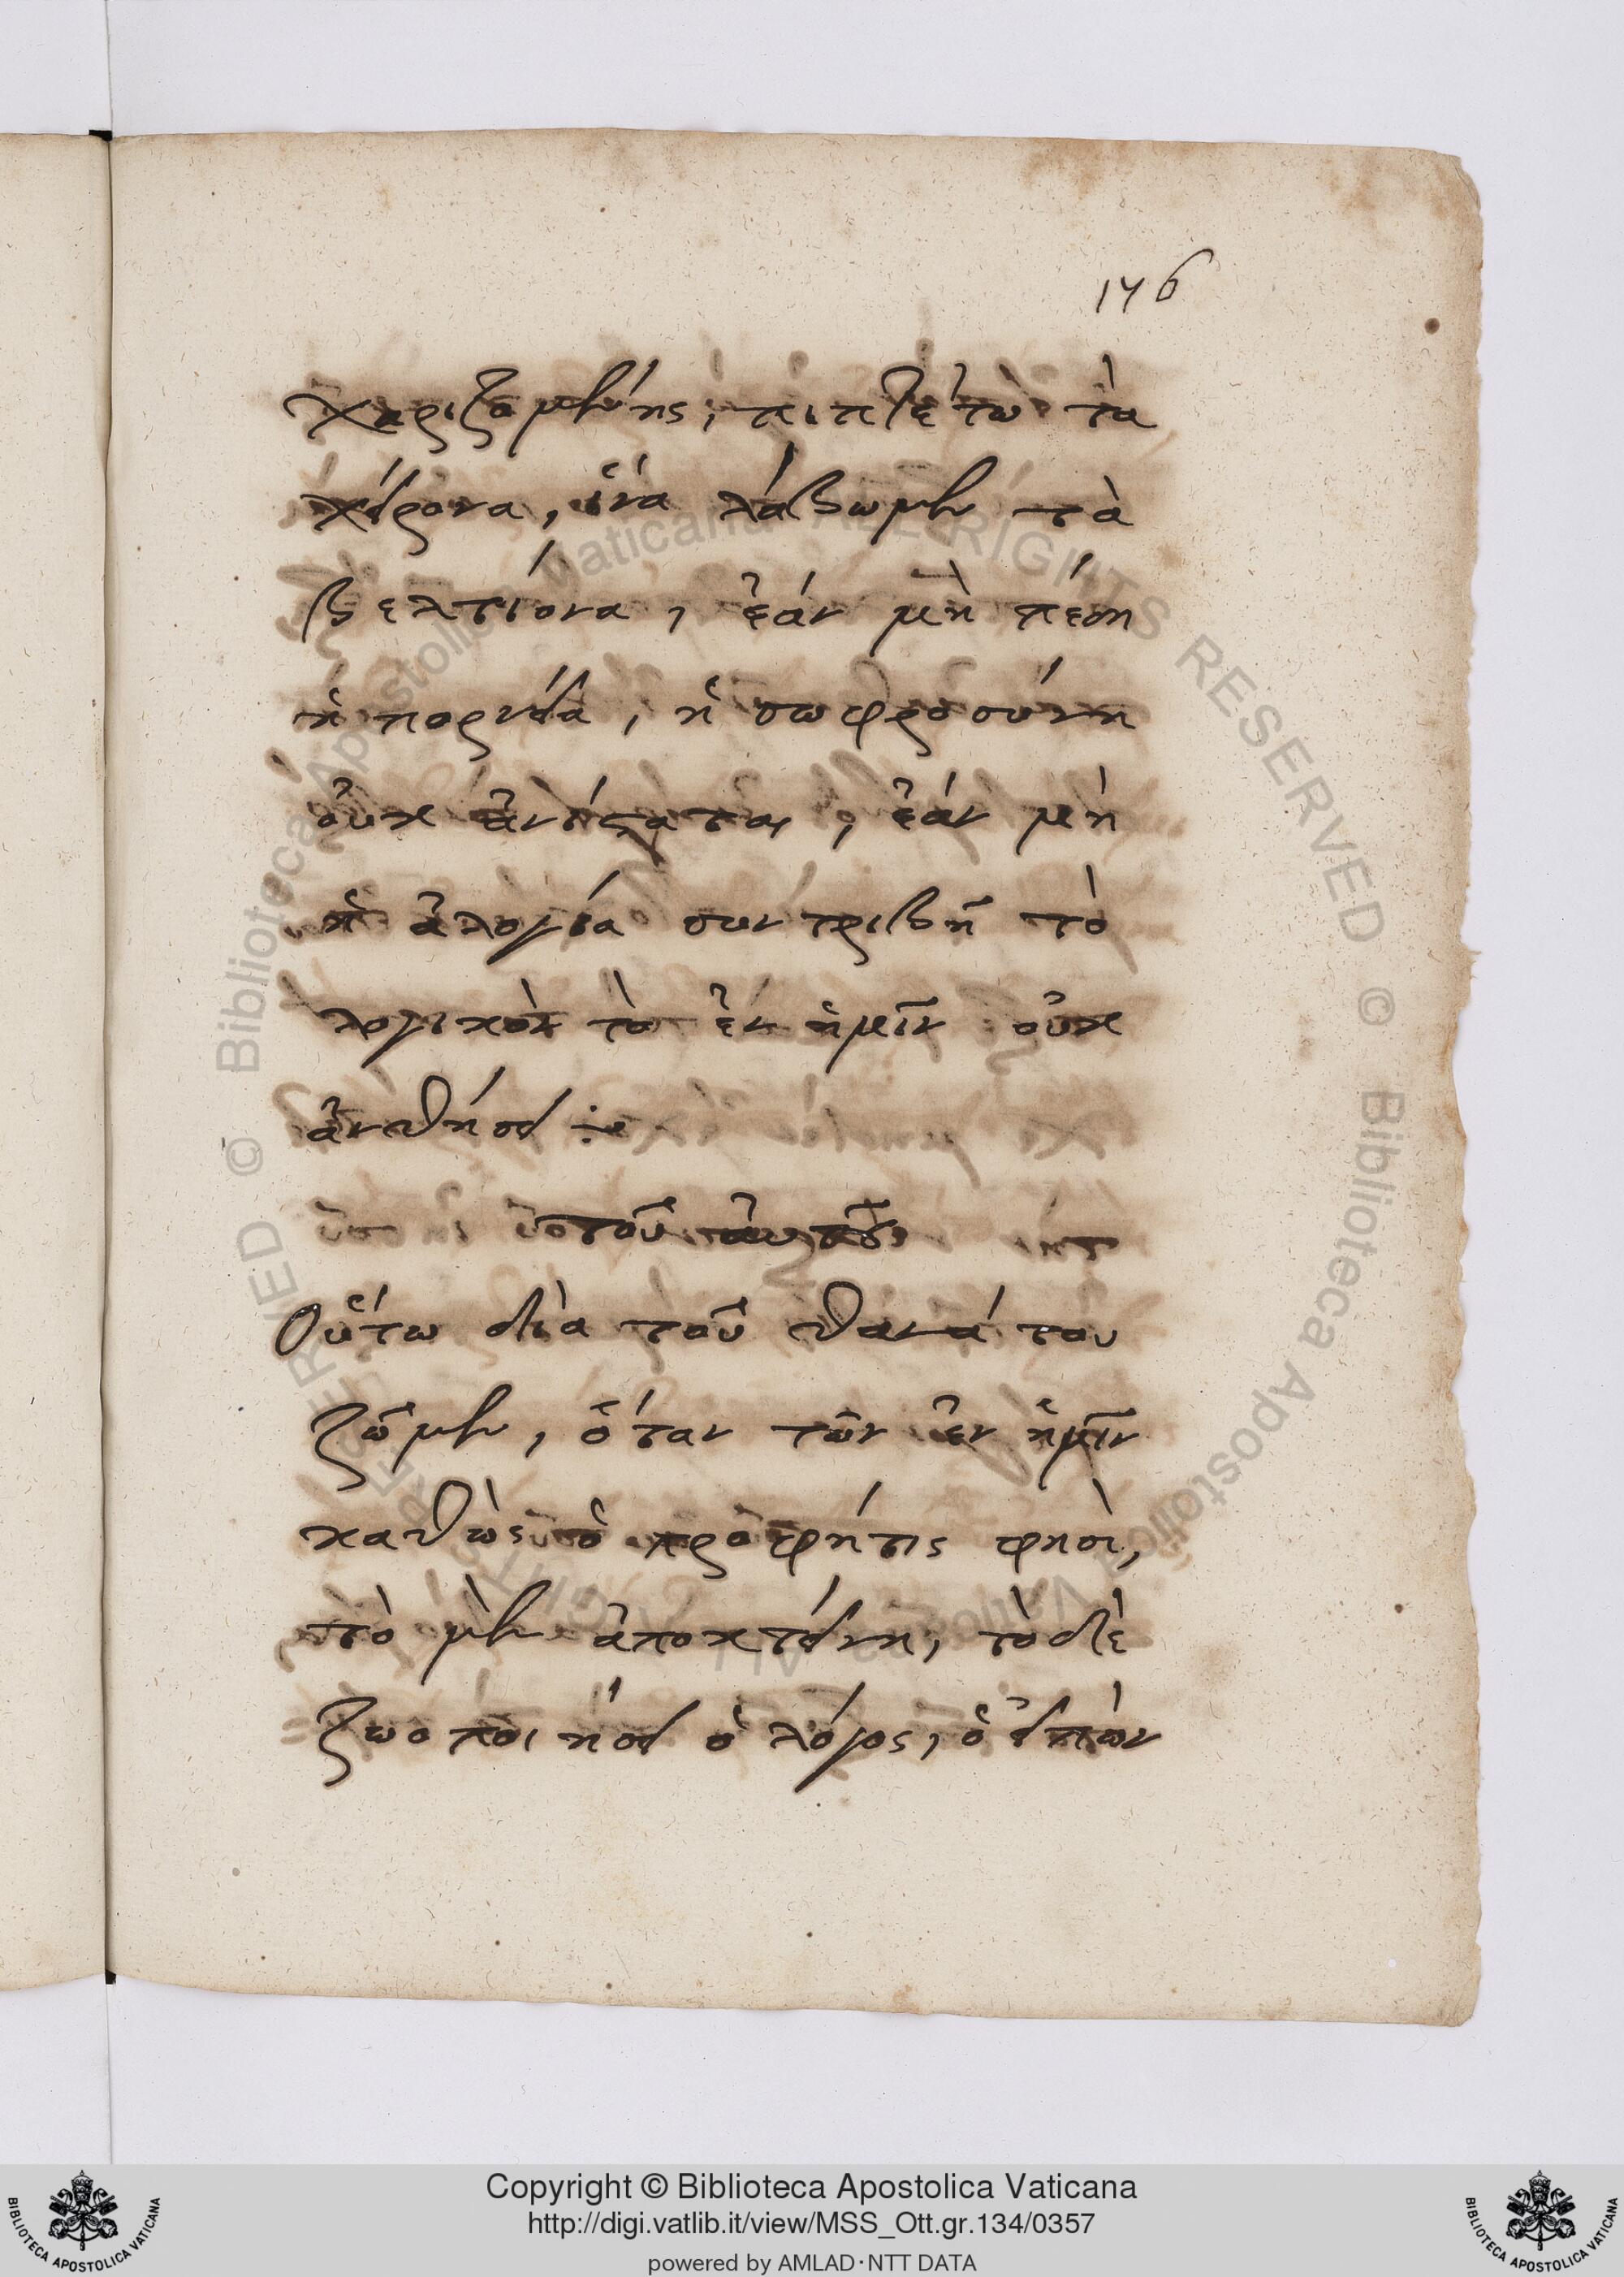 176
χαριζομένης, πιπτέτω τὰ
χείρονα, ἵνα λάβωμεν τὰ
βελτίονα, ἐὰν μὴ πέση
ἡ πορνεία, ἡ σωφροσύνη
οὐκ ἀνίσταται, ἐάν μὴ
ἡ ἀλογία συντριβῆ τὸ
λογικὸν τὸ ἐν ἡμῖν οὐκ
ἀνθήσει
τοῦ αὐτοῦ
Οὕτω διὰ τοῦ θανάτου
ζῶμεν, ὅταν τῶν ἐν ἡμῖν
καθὼς ὁ προφήτις φησὶ,
τὸ μὲν ἀποκτείνη, τὸ δὲ
ζωοποιήσει ὁ λόγος, ὁ εἰπὼν
© Biblioteca Apostolica Vaticana ALL RIGHTS RESERVED © Biblioteca Apostolica Vaticana ALL RIGHTS RESERVED
Copyright © Biblioteca Apostolica Vaticana
http://digi.vatlib.it/view/MSS_Ott.gr.134/0357
powered by AMLAD·NTT DATA
BIBLIOTECA APOSTOLICA VATICANA
BIBLIOTECA APOSTOLICA VATICANA